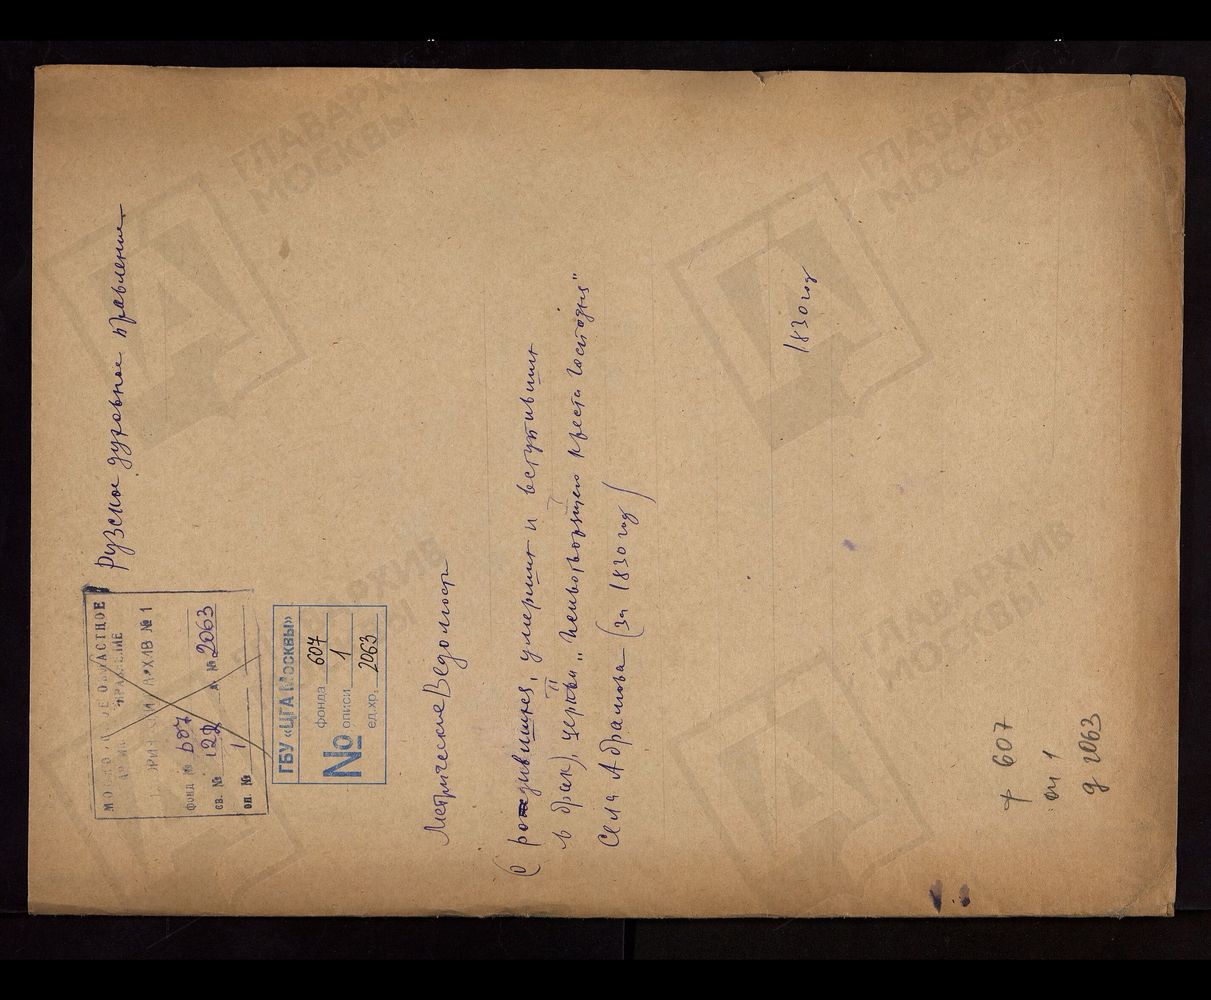 Рузское духовное правление
МОСКОВСКОЕ ОБЛАСТНОЕ
АРХИВ № 1
фонд № 607
св. № 122 д. № 2063
оп. № 1
ГБУ «ЦГА Москвы»
№ фонда 607
описи 1
ед.хр. 2063
Метрические Ведомости
(О родившихся, умерших и вступивших
в брак), церкви „ Животворящего креста Господня"
Села Абрамова (за 1830 год)
1830 год
ф 607
оп 1
д 2063
ГЛАВАРХИВ
МОСКВЫ
ГЛАВАРХИВ
МОСКВЫ
ГЛАВАРХИВ
МОСКВЫ
ГЛАВАРХИВ
МОСКВЫ